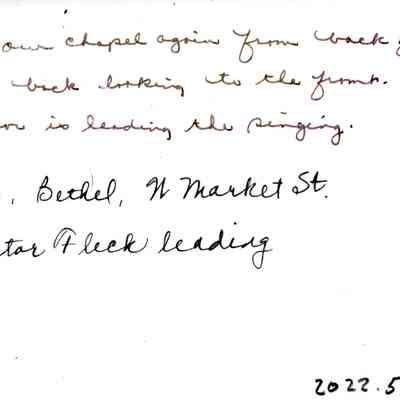 our chapel again from back
back looking to the front.
is leading the singing.
, Bethel, N Market St.
tor Fleck leading
2022.5